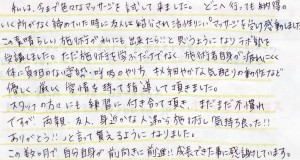 私は、今まで色々なマッサージを試して来ました。どこへ行っても納得の
いく所がなく諦めていた時に友人に紹介され活性リンパマッサージを受け感動しました。
この素晴らしい施術が私にも出来たら!!と思うようになりラボ塾を
受講しました。ただ施術を学ぶだけでなく、施術者自身が疲れにくく
体に負担のない姿勢・呼吸のやり方、きめ細やかな気配りの動作など
優しく、厳しく、愛情を持って指導して頂きました。
スタッフの方々にも練習に付き合って頂き、まだまだ不慣れ
ですが、両親、友人、身近かな人達から施術し気持ち良った!!
ありがとう!!と言って貰えるようになりました。
この数ヶ月で自分自身が前向きに前進!!成長できた事に感謝しています。